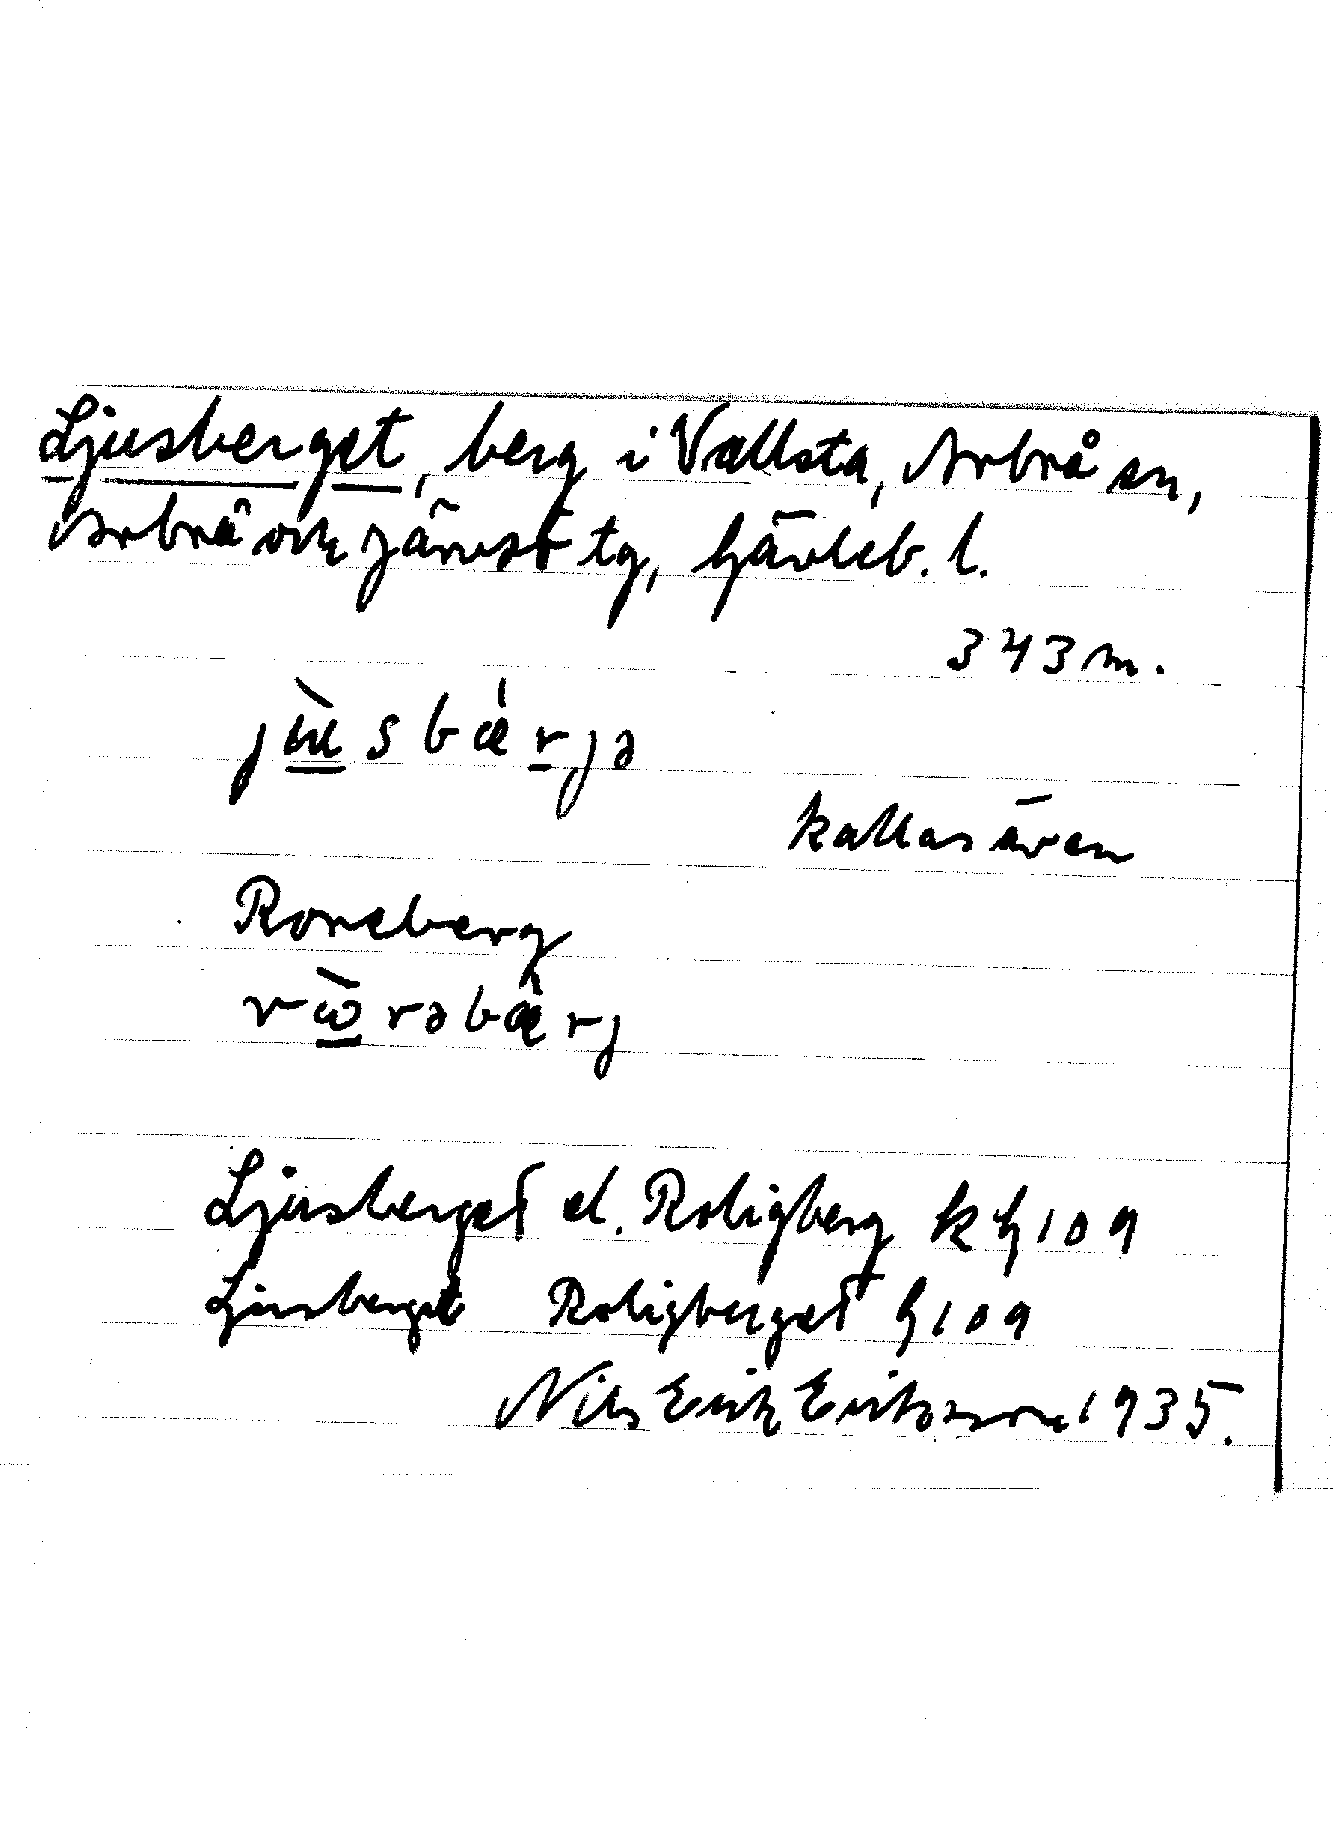 Ljusberget, berg i Vallsta, Arbrå sn,
Arbrå och Järvsö tg, Gävleb. l.
343 m.
jùsbárjə
kallas även
Roreberg
rꞷ̀rəbærj
Ljusberget el. Roligberg k G 109
Ljusberget Roligberget G 109
Nils Erik Eriksson 1935.